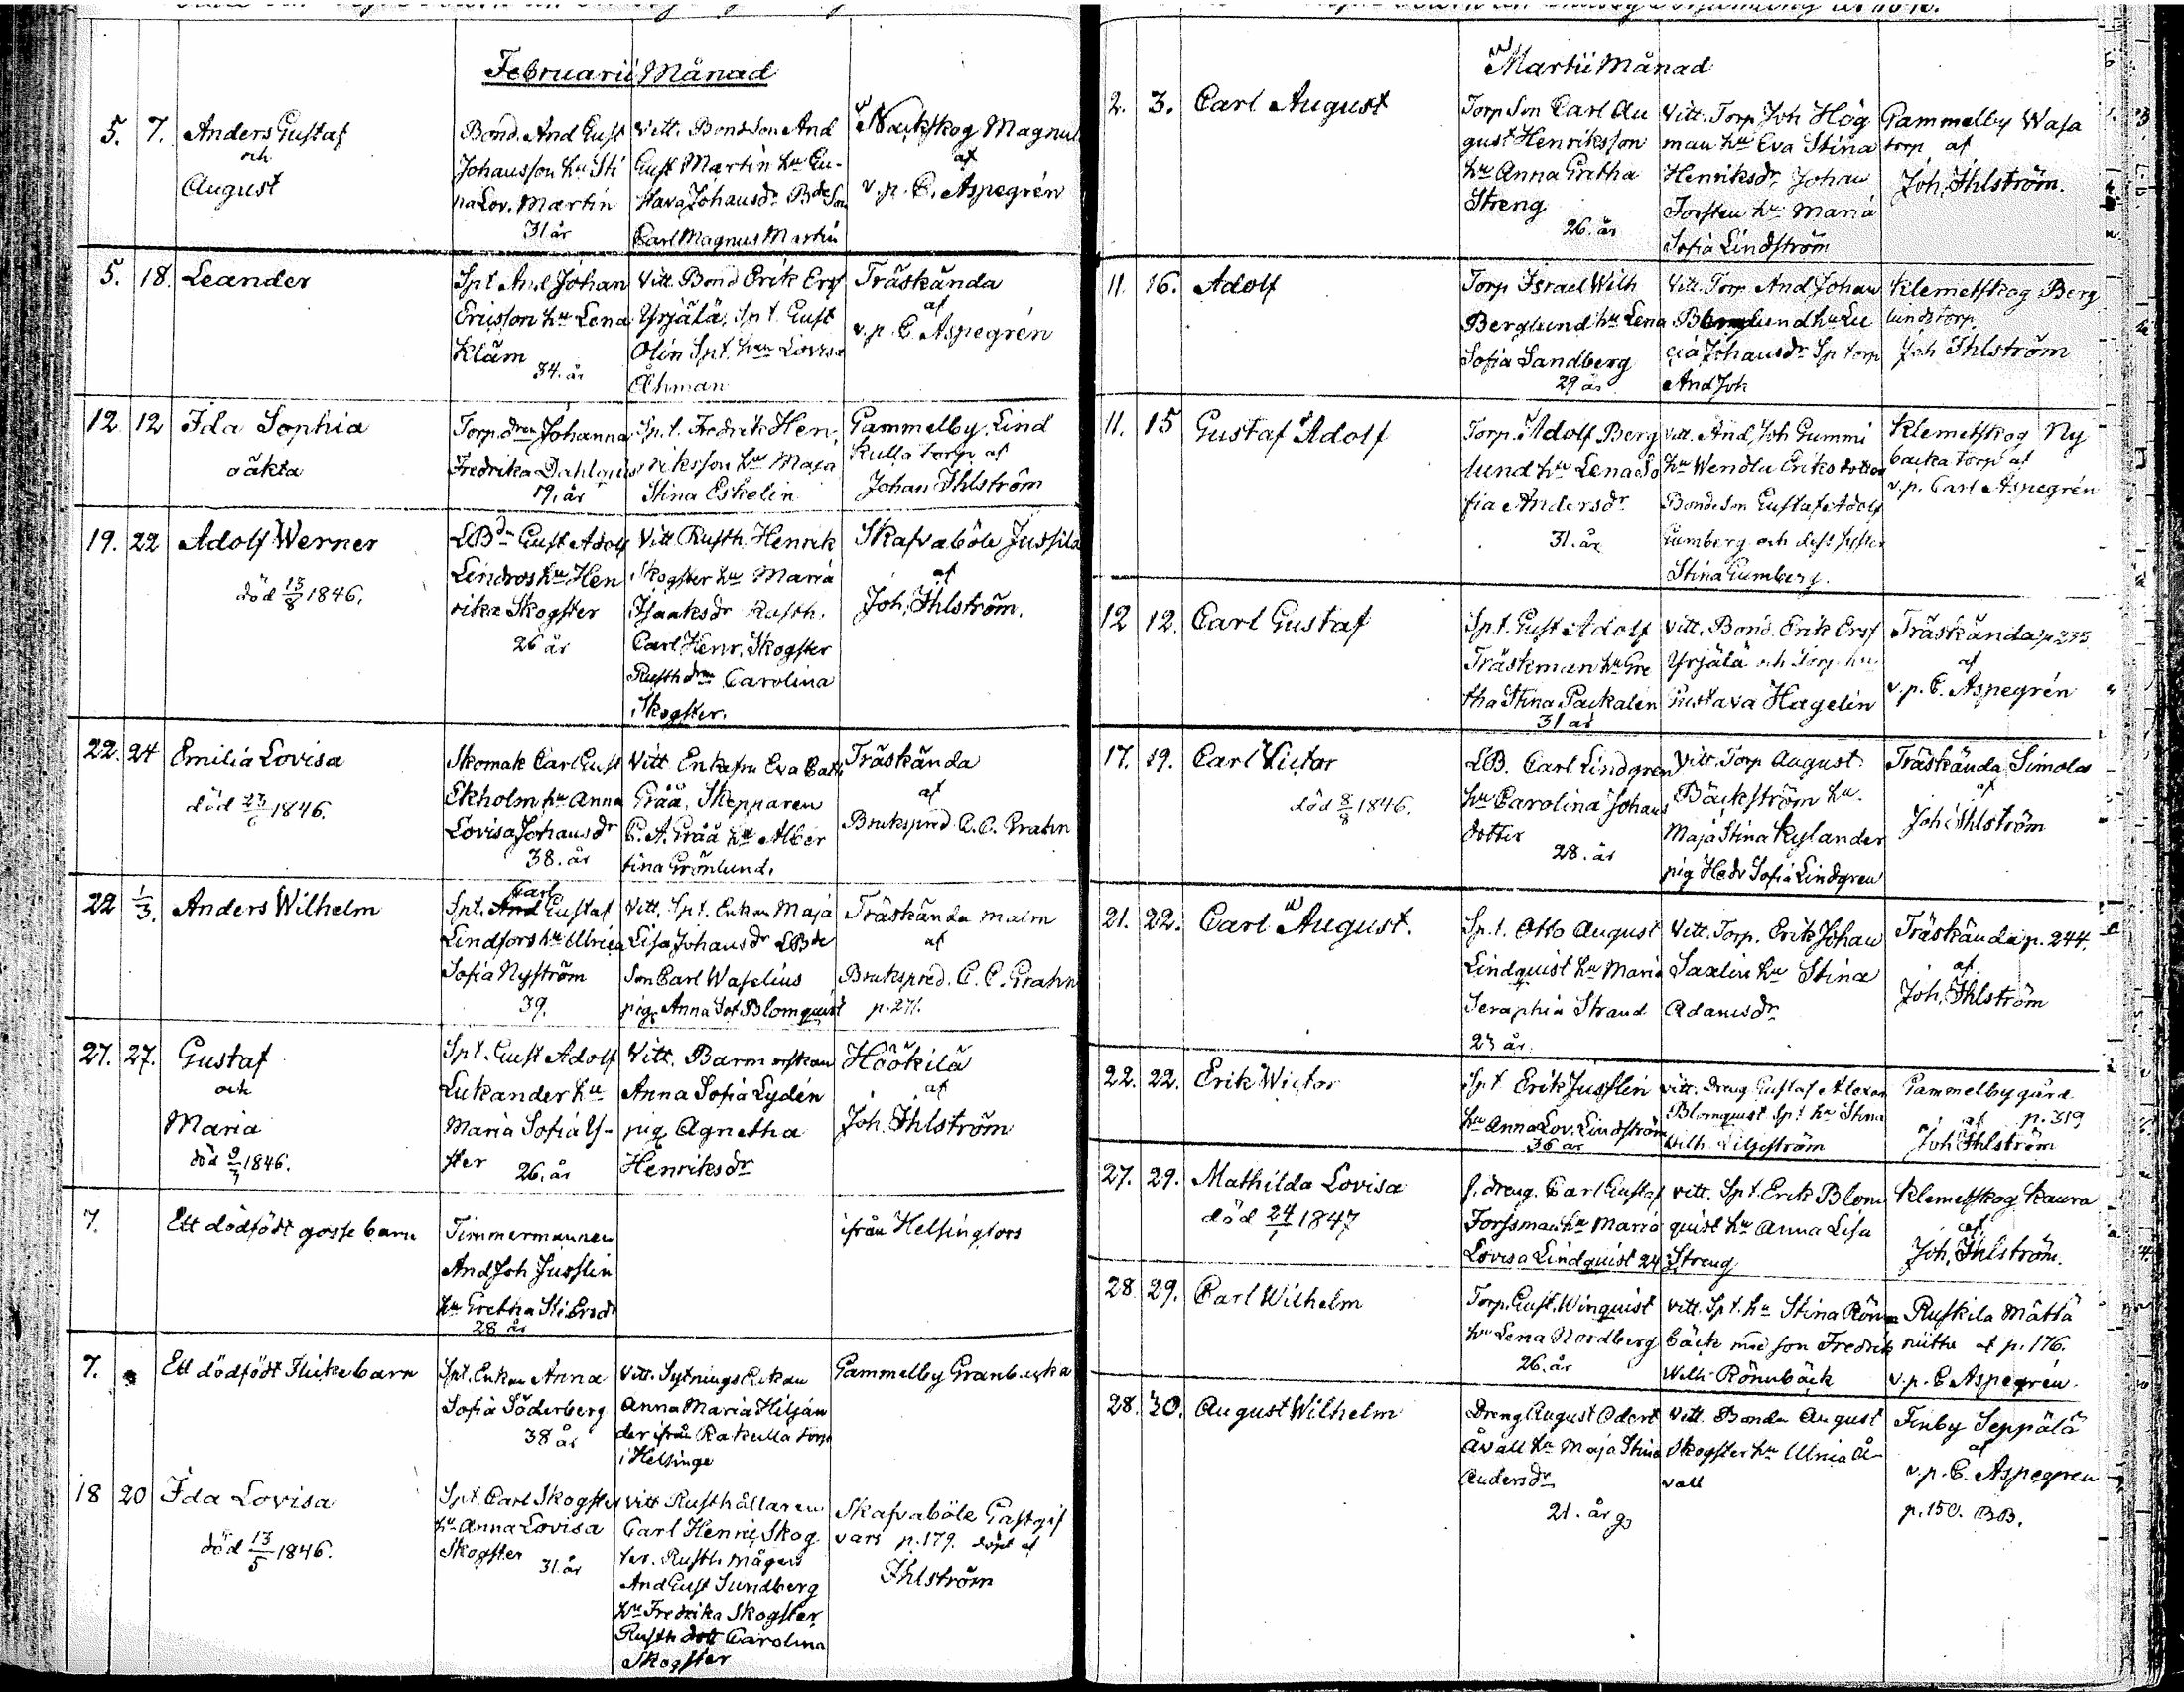 Februarii Månad
5. 7. Anders Gustaf
och
August
Bond. And Gust
Johansson hu Sti
na Lov. Martin
31 år
Vitt. Bondson And
Gust Martin hu Gu-
stava Johansdr Bde Son
Carl Magnus Martin
Nackskog Magnus
af
v.p. C. Aspegrén
5. 18. Leander
Spt And Johan
Ericsson hu Lena
Kläm
34. år
Vitt. Bond Erik Ersf
Yrjälä, Spt. Gust
Olin Spt. hun Lovisa
Öhman
Träskända
af
v.p. C. Aspegrén
12 12 Ida Sophia
oäkta
Torp.dren Johanna
Fredrika Dahlquist
19. år
Sp.t. Fredrik Hen,
riksson hu Maja
Stina Eskelin
Gammelby. Lind
kulla Torp af
Johan Ihlström
19. 22 Adolf Werner
död 13/8 1846.
LBdn Gust Adolf
Lindros hu Hen
rika Skogster
26 år
Vitt Rusth. Henrik
Skogster hu Maria
Isaaksdr Rusth.
Carl Henr. Skogster
Rusth drn Carolina
Skogster.
Skafvaböle Jussila
af
Joh. Ihlström.
22. 24 Emilia Lovisa
död 1846.
Skomak Carl Gust
Ekholm hu Anna
Lovisa Johansdr
38. år
Vitt Enkefru Eva Cath
Gråå, Skepparen
C. A. Gråå hu Alber
tina Grönlund.
Träskända
af
Brukspred. C. C. Grahn
22 1/3. Anders Wilhelm
Carl
Spt. And Gustaf
Lindfors hu Ulrica
Sofia Nyström
39.
Vitt. Spt. Enkan Maja
Lisa Johansdr LBde
Son Carl Waselius
pig. Anna Sof Blomquist
Träskända malm
af
Brukspred. C. C. Grahn
p. 271.
27. 27. Gustaf
och
Maria
död 9/7 1846.
Spt. Gust Adolf
Lukander hu
Maria Sofia Ul-
ster 26. år
Vitt. Barmorskan
Anna Sofia Lydén
pig Agnetha
Henriksdr
Höökilä
af
Joh. Ihlström
7. Ett dödfödt gosse barn
Timmermannen
And Joh Jusslin
hu Gretha Sti Ersdr
28 år
ifrån Helsingfors
7. Ett dödfödt Flickebarn
Spt. Enkan Anna
Sofia Söderberg
38 år
Vitt. Sytnings Enkan
Anna Maria Hiljan
der ifrån Rakulla torp
i Helsinge
Gammelby Granbacka
18 20 Ida Lovisa
död 13/5 1846.
Spt. Carl Skogster
hu Anna Lovisa
Skogster 31. år
Vitt Rusthållaren
Carl Henric Skog
ster. Rusth. mågen
And Gust Sundberg
hu Fredrika Skogster,
Rusth dott Carolina
Skogster
Skafvaböle Gästgif
vars p. 179. döpt af
Ihlström
Martii Månad
2. 3. Carl August
Torp Son Carl Au
gust Henriksson
hu Anna Gretha
Streng
26. år
Vitt. Torp. Joh Hög
man hu Eva Stina
Henriksdr, Johan
Forsten hu Maria
Sofia Lindström
Gammelby Wasa
torp af
Joh. Ihlström.
11. 16. Adolf
Torp Israel Wilh
Berglund hu Lena
Sofia Sandberg
29 år
Vitt. Torp And Johan
Berglund hu Lu
cia Johansdr Sp torp
And Joh
Klemetskog Berg
lunds torp.
Joh Ihlström
11. 15 Gustaf Adolf
Torp. Adolf Berg
lund hu Lena So
fia Andersdr
31. år
Vitt. And. Joh Gummi
hu Wendla Eriks dotter
Bondeson Gustaf Adolf
Gumberg och dess syster
Stina Gumberg.
Klemetskog Ny
backa Torp af
v.p. Carl Aspegrén
12 12. Carl Gustaf
Sp.t. Gust Adolf
Träskman hu Gre
tha Stina Packalén
31 år
Vitt. Bond. Erik Ersf
Yrjälä och Torp. hu
Gustava Hagelin
Träskända p 235
af
v.p. C. Aspegrén
17. 19. Carl Victor
död 8/8 1846.
LB. Carl Lindgren
hu Carolina Johans
dotter
28. år
Vitt. Torp August
Bäckström hu.
Maja Stina Kylander
pig Hedv Sofia Lindgren
Träskända Simola
af
Joh. Ihlström
21. 22. Carl August.
Sp.t. Otto August
Lindquist hu Maria
Seraphia Strand
23 år.
Vitt. Torp. Erik Johan
Saxlin hu Stina
Adamsdr
Träskända p. 244.
af
Joh. Ihlström
22. 22. Erik Wictor
Spt Erik Jusslin
hu Anna Lov. Lindström
36 år
Vitt. Dreng Gustaf Alexan
Blomquist Sp.t hu Stina
Wilh. Liljeström
Gammelbygård
af p. 319
Joh Ihlström
27. 29. Mathilda Lovisa
död 24/7 1847
f. dreng. Carl Gustaf
Forssman hu Maria
Lovisa Lindquist 24
Vitt. Spt. Erik Blom
quist hu Anna Lisa
Streng
Klemetskog Kaura
af
Joh. Ihlström.
28 29. Carl Wilhelm
Torp. Gust. Winquist
hu Lena Nordberg
26. år
Vitt. Sp.t. hu Stina Rönn
bäck med son Fredrik
Wilh. Rönnbäck
Ruskila Mätta
niittu af p. 176.
v.p. C Aspegrén.
28. 30. August Wilhelm
Dreng August Odert
Åvall hu Maja Stina
Andersdr
21. år
Vitt. Bonden August
Skogster hu Ulrica Å-
vall
Finby Seppälä
af
v.p. C. Aspegren
p. 150. BB.